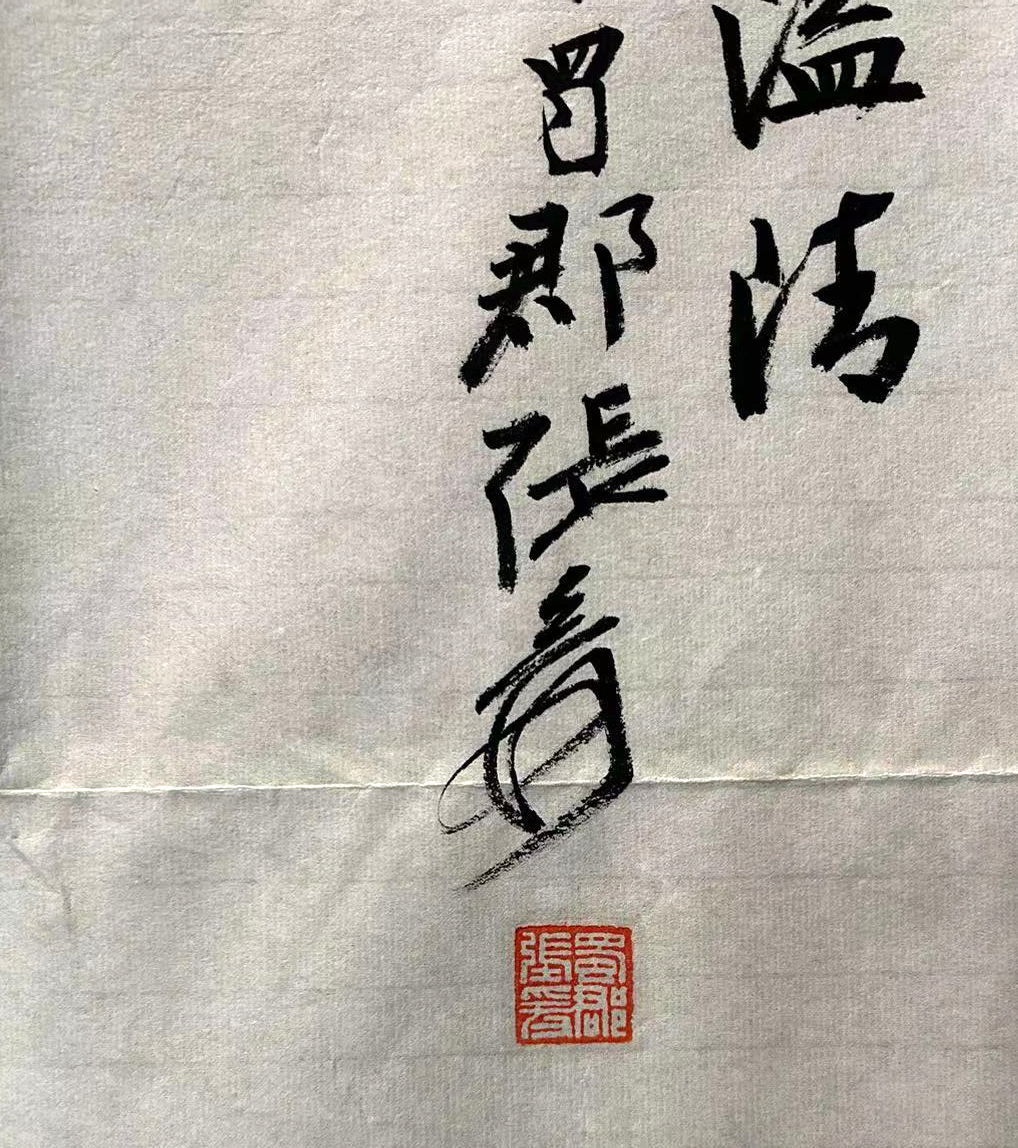 溢清
蜀郡張爰
蜀郡張爰